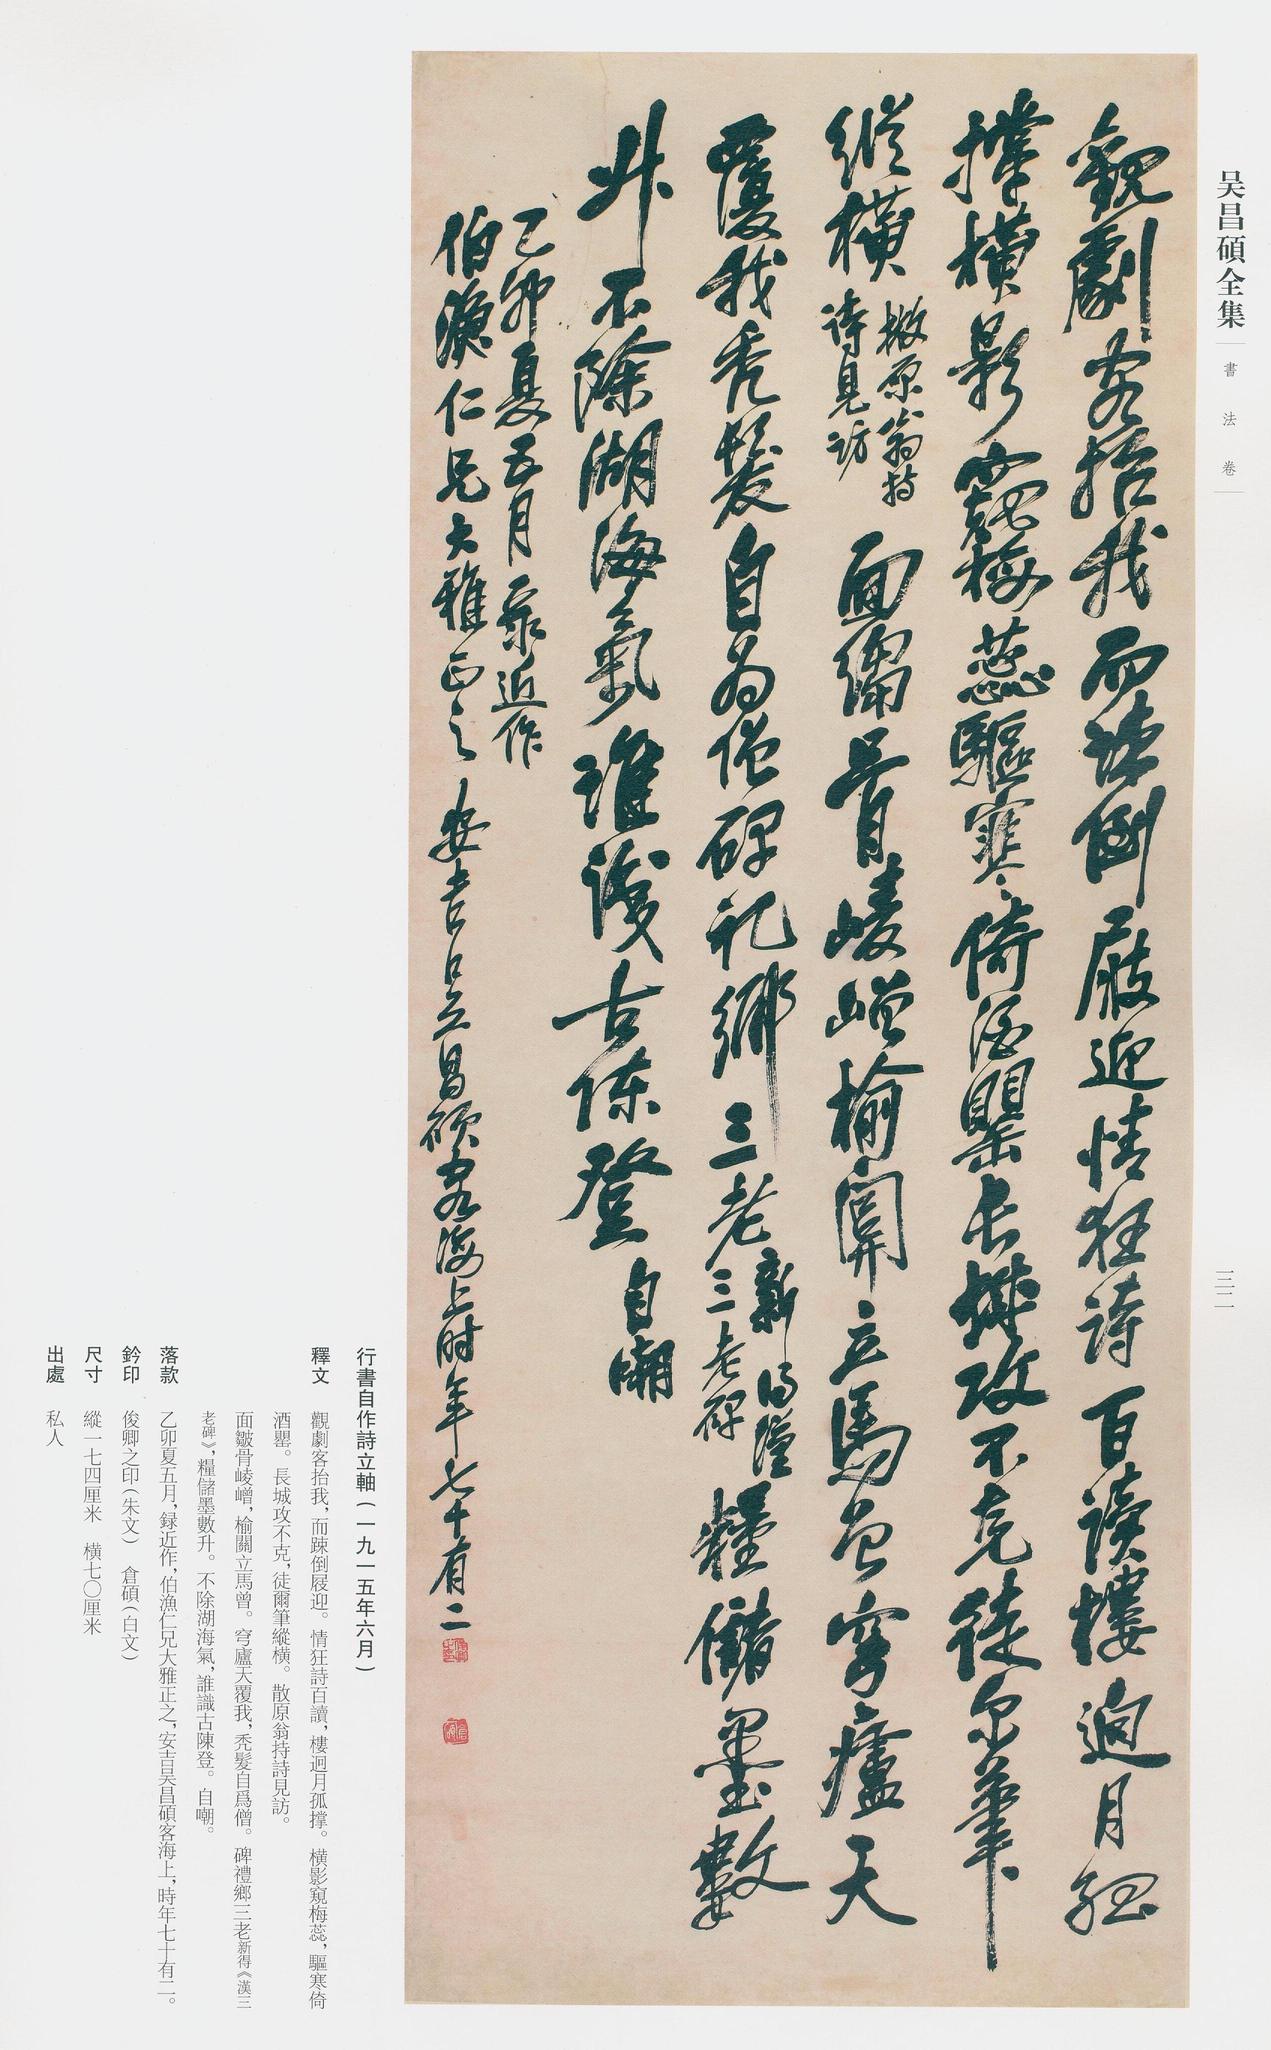 吴昌碩全集
書法卷
三二
觀劇客抬我而踈倒屐迎情狂詩百讀樓迥月孤
撑橫影窺梅蕊驅寒倚酒罌長城攻不克徒尔筆
縱橫
散原翁持
詩見訪
面皺骨崚嶒榆關立馬曾穹廬天
覆我禿髮自為僧碑礼鄉三老
新得漢
三老碑
糧儲墨數
升不除湖海氣誰識古陳登
自嘲
乙卯夏五月录近作
伯漁仁兄大雅正之安吉吴昌碩客海上时年七十有二
行書自作詩立軸(一九一五年六月)
釋文 觀劇客抬我,而踈倒屐迎。情狂詩百讀,樓迥月孤撑。橫影窺梅蕊,驅寒倚
酒罌。長城攻不克,徒爾筆縱橫。散原翁持詩見訪。
面皺骨崚嶒,榆關立馬曾。穹廬天覆我,禿髮自爲僧。碑禮鄉三老新得《漢三
老碑》,糧儲墨數升。不除湖海氣,誰識古陳登。自嘲。
落款 乙卯夏五月,録近作,伯漁仁兄大雅正之,安吉吴昌碩客海上,時年七十有二。
鈐印 俊卿之印(朱文) 倉碩(白文)
尺寸 縱一七四厘米 橫七〇厘米
出處 私人